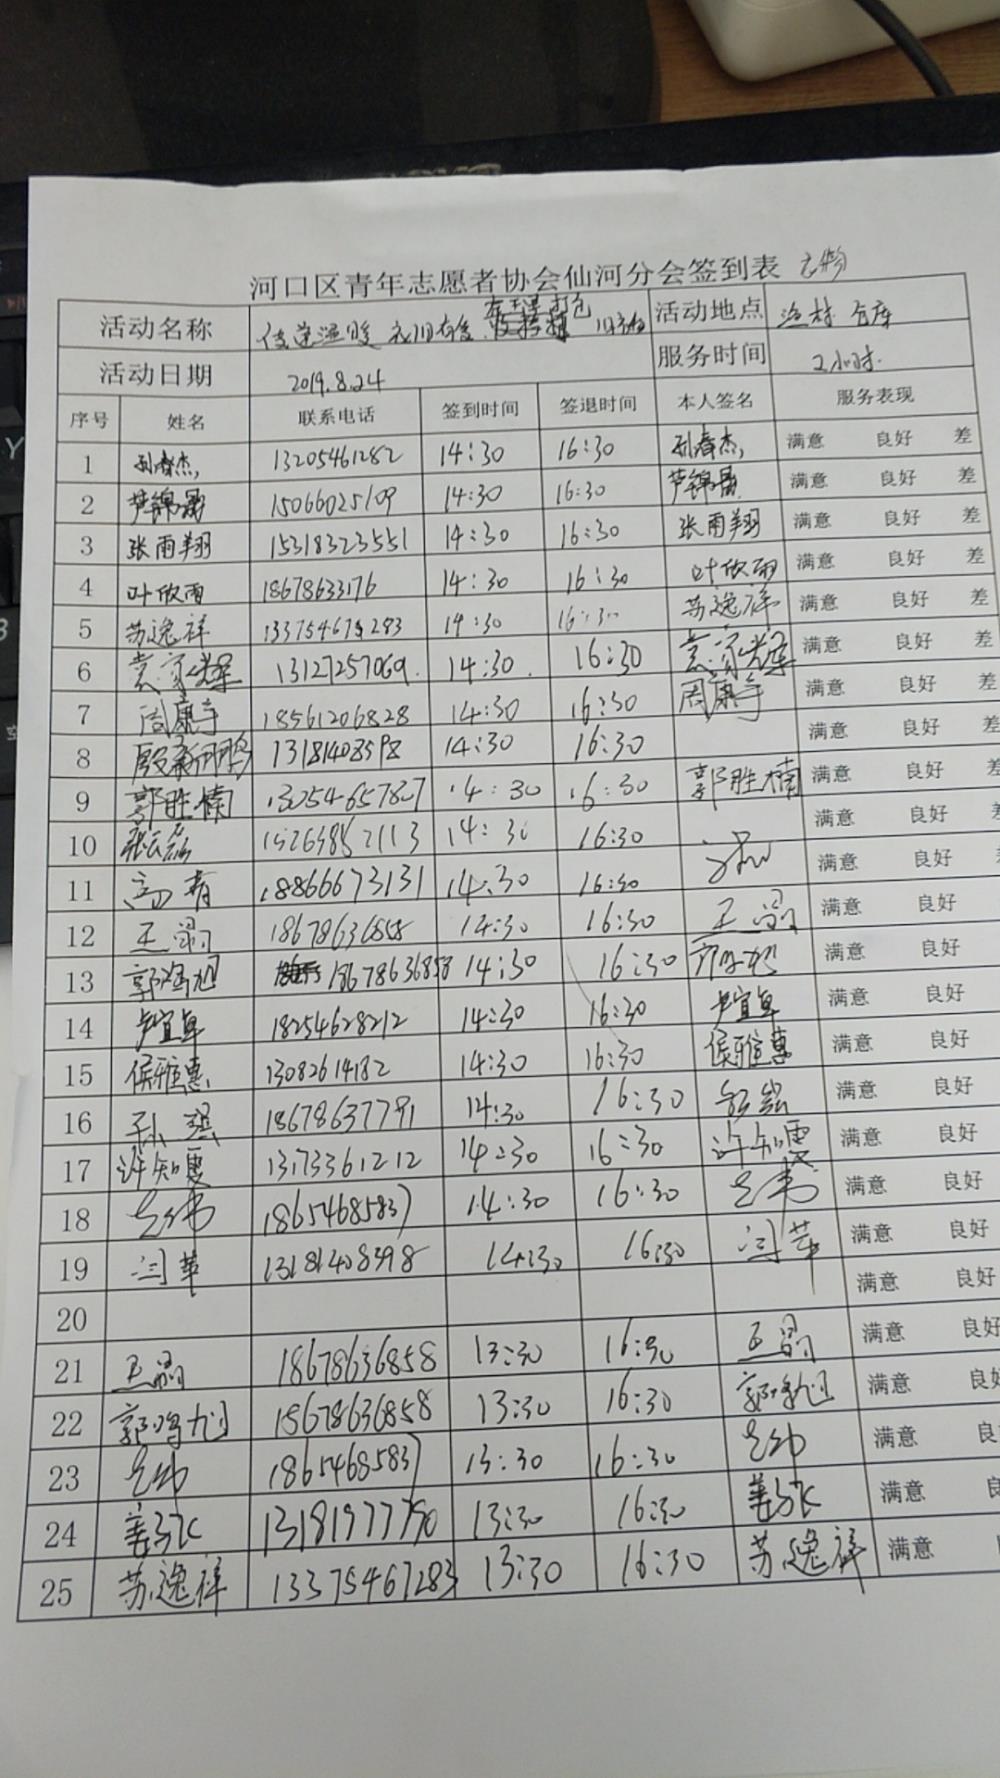 河口区青年志愿者协会仙河分会签到表
活动名称 传递温暖 衣旧有爱 打包 活动地点 仓库
活动日期 2019.8.24 服务时间 2小时.
序号 姓名 联系电话 签到时间 签退时间 本人签名 服务表现
1 孙春杰 13205461282 14:30 16:30 孙春杰 满意 良好 差
2 芦锦晨 15066025109 14:30 16:30 芦锦晨 满意 良好 差
3 张雨翔 15318323551 14:30 16:30 张雨翔 满意 良好 差
4 叶欣雨 18678633176 14:30 16:30 叶欣雨 满意 良好 差
5 苏逸祥 13375467283 14:30 16:30 苏逸祥 满意 良好 差
6 袁家辉 13127257069. 14:30. 16:30 袁家辉 满意 良好 差
7 周康宇 18561206828 14:30 16:30 周康宇 满意 良好 差
8 13181408398 14:30 16:30 满意 良好 差
9 郭胜楠 13054657807 14:30 16:30 郭胜楠 满意 良好 差
10 张磊 15265852113 14:30 16:30 满意 良好 差
11 高青 18866673131 14:30 16:30 满意 良好
12 王 18678636858 14:30 16:30 王 满意 良好
13 郭鸿旭 18678636858 14:30 16:30 满意 良好
14 尹宜卓 18254628212 14:30 16:30 尹宜卓 满意 良好
15 侯雅惠 13082614182 14:30 16:30 侯雅惠 满意 良好
16 孙 18678637791 14:30 16:30 满意 良好
17 许知雯 13173361212 14:30 16:30 许知雯 满意 良好
18 18654685837 14:30 16:30 满意 良好
19 闫苹 13181408398 14:30 16:30 闫苹 满意 良好
20 满意 良好
21 王 18678636858 13:30 16:30 王 满意 良好
22 郭鸿旭 18678636858 13:30 16:30 郭鸿旭 满意 良
23 18654685837 13:30 16:30 满意 良
24 13181977790 13:30 16:30 满意
25 苏逸祥 13375467283 13:30 16:30 苏逸祥 满意